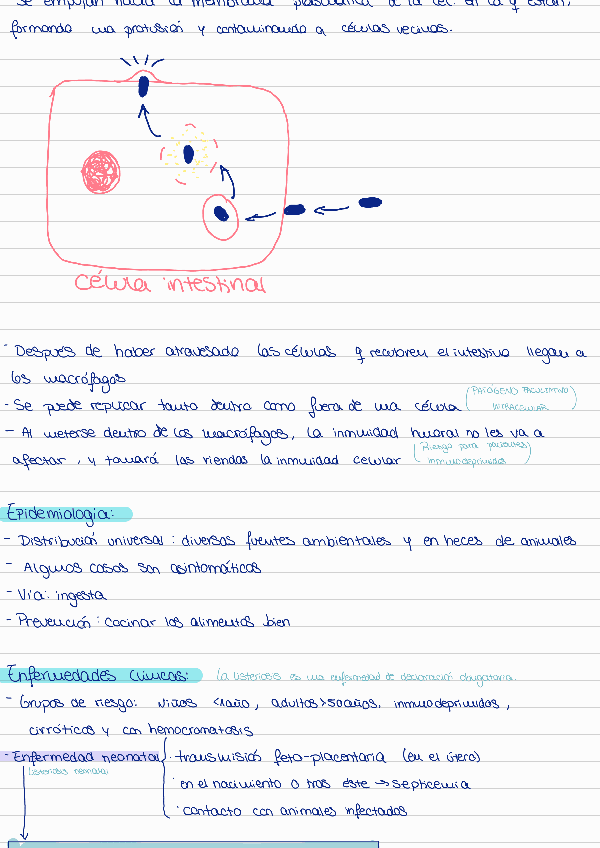 se empujan hacia la membrana plasmática de la cél. en la q están,
formando una protusión y contaminando a células vecinas.
célula intestinal
- Después de haber atravesado las células q recubren el intestino llegan a
los macrófagos
- Se puede replicar tanto dentro como fuera de una célula (PATÓGENO FACULTATIVO
INTRACELULAR)
- Al meterse dentro de los macrófagos, la inmunidad humoral no les va a
afectar, y tomará las riendas la inmunidad celular (Riesgo para pacientes
inmunodeprimidos)
Epidemiología:
- Distribución universal: diversas fuentes ambientales y en heces de animales
- Algunos casos son asintomáticos
- Vía: ingesta
- Prevención: cocinar los alimentos bien
Enfermedades clínicas: La listeriosis es una enfermedad de declaración obligatoria.
- Grupos de riesgo: niños <1año, adultos >50años, inmunodeprimidos,
cirróticos y con hemocromatosis
- Enfermedad neonatal { · transmisión feto-placentaria (en el útero)
listeriosis neonatal
· en el nacimiento o tras este → septicemia
· contacto con animales infectados